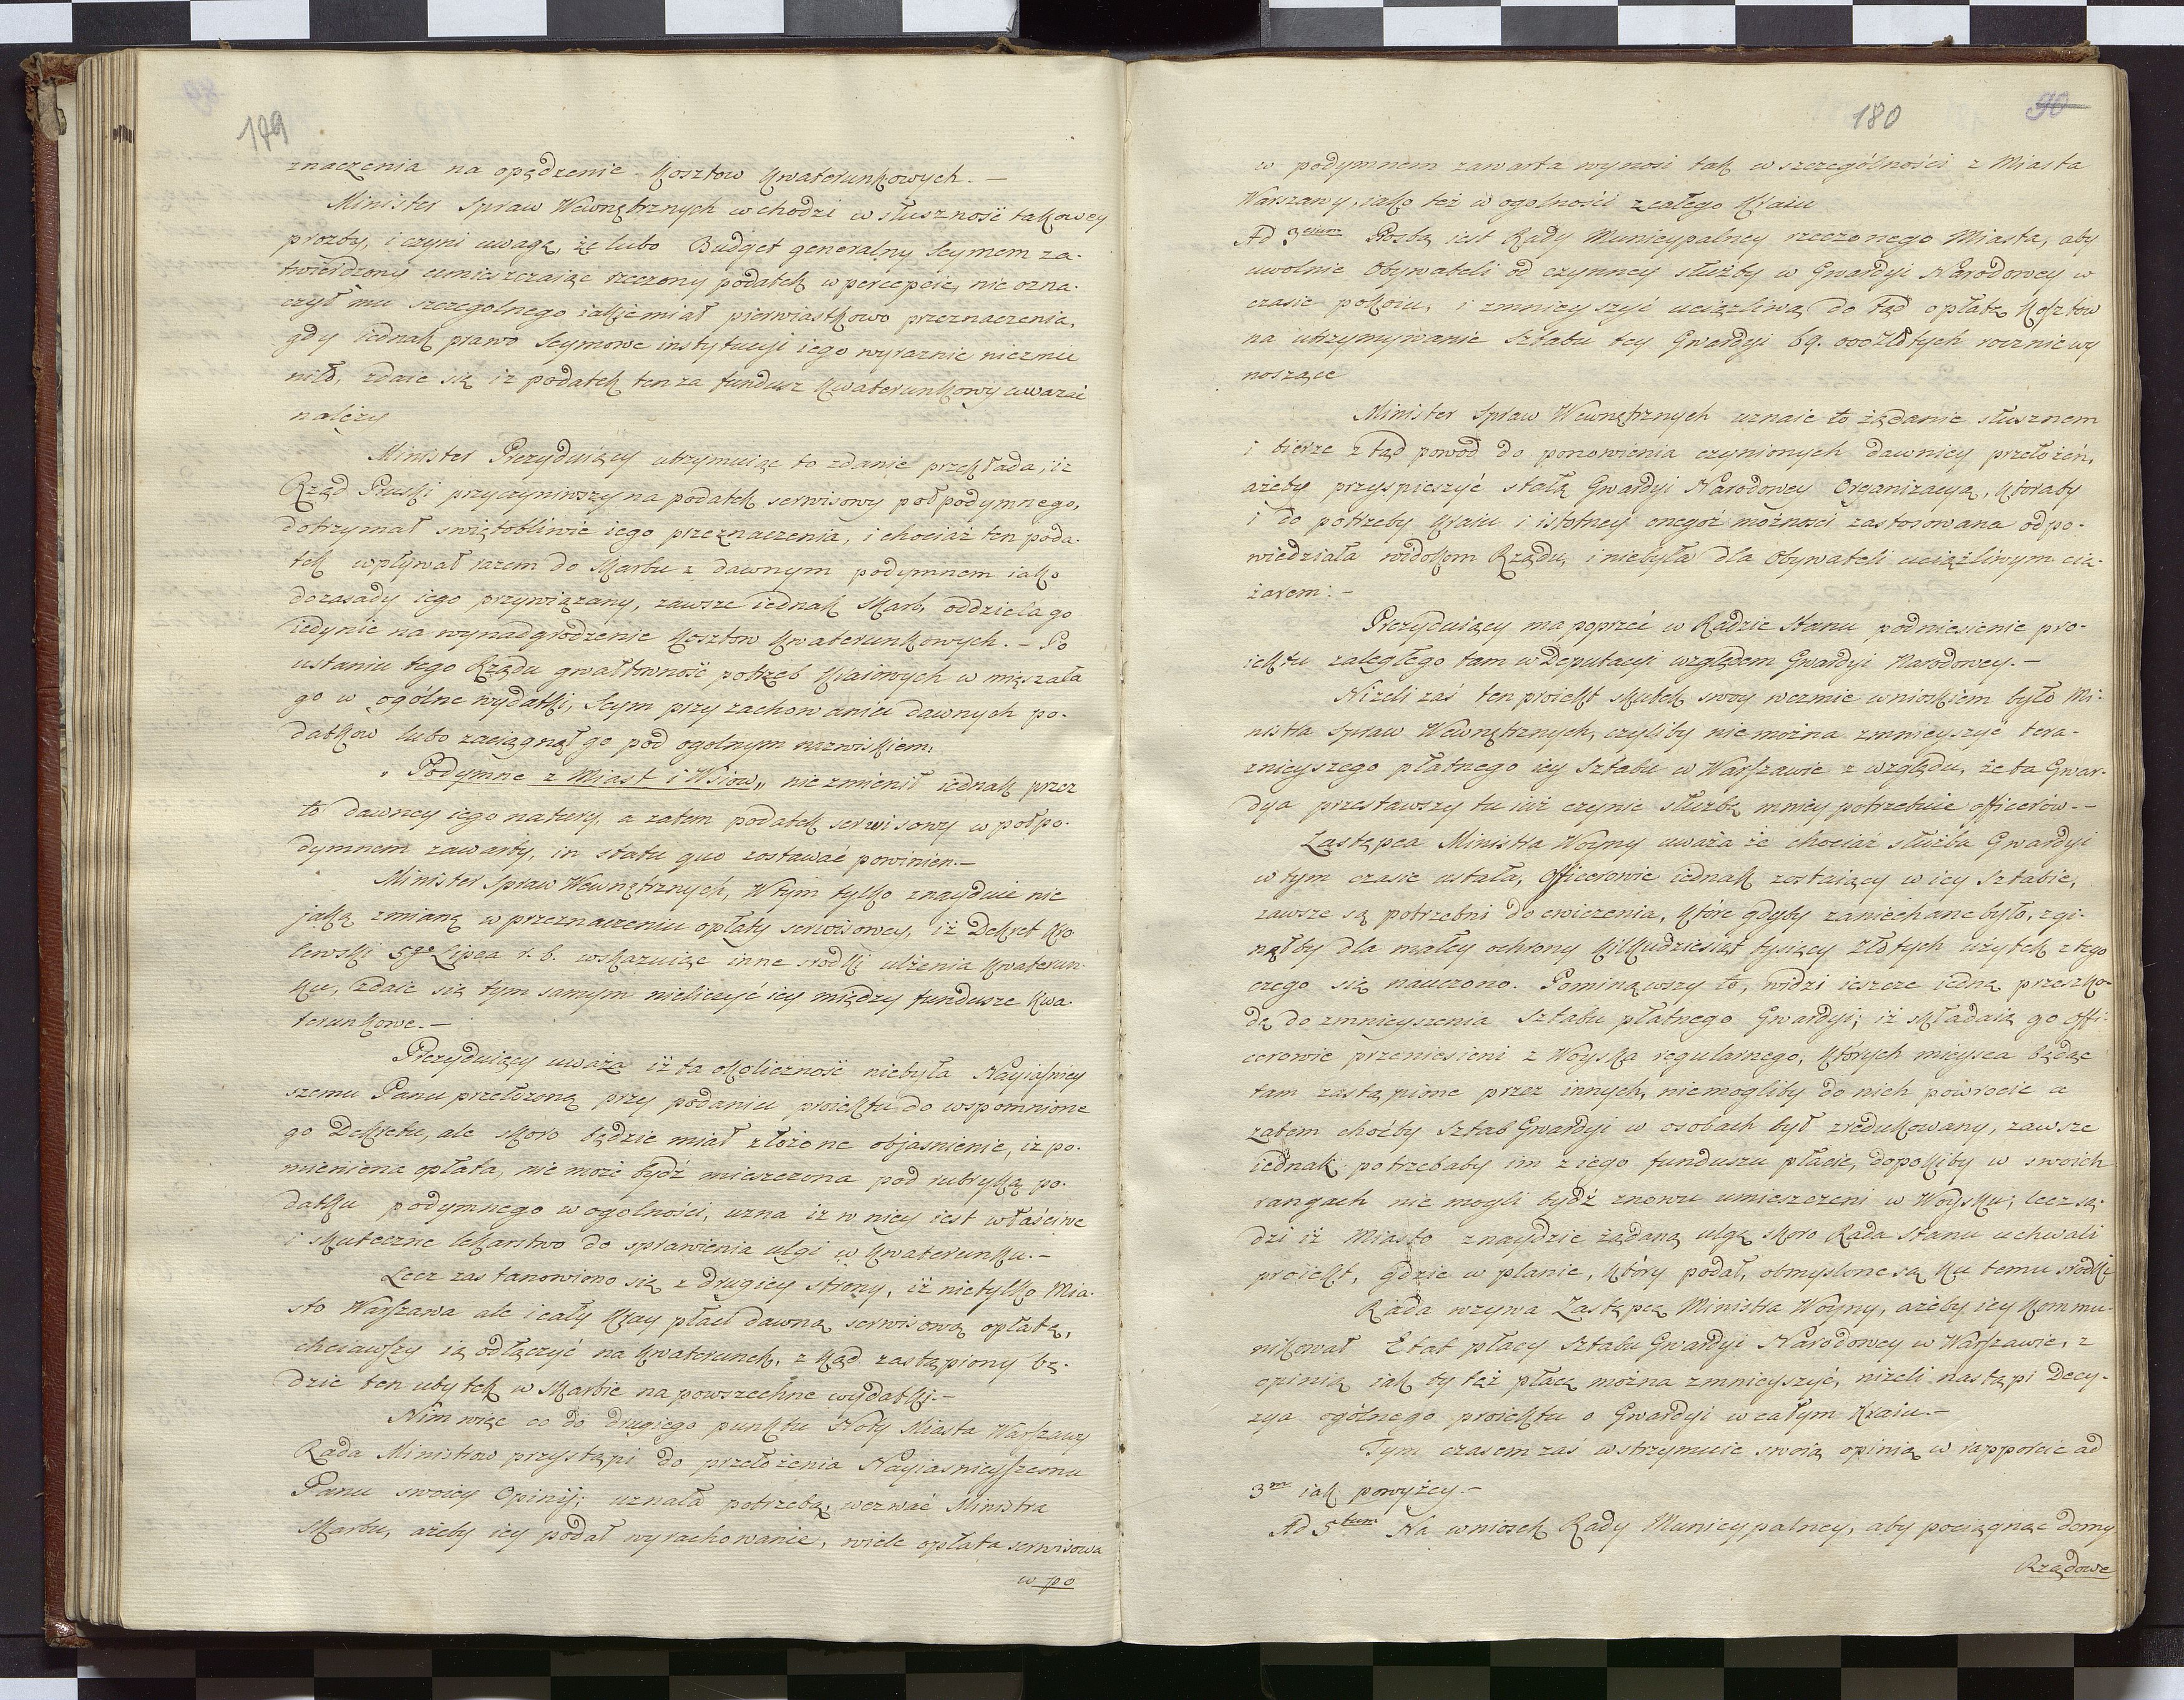 179
znaczenia na opędzenie kosztow kwaterunkowych. —
Minister Spraw Wewnętrznych wchodzi w słusznośź takowey
prozby, i czyni uwagę, że lubo Budget generalny Seymem za-
twierdzony umieszczaiąc rzeczony podatek w percepcie, nie ozna-
czył mu szczegolnego iakie miał pierwiastkowo przeznaczenia,
gdy iednak prawo Seymowe instytucyi iego wyraznie niezmie
niło, zdaie się iz podatek ten za fundusz kwaterunkowy uwazać
należy
Minister Prezyduiący utrzymuiąc to zdanie przekłada, iż
Rząd Pruski przyczyniwszy na podatek serwisowy poł podymnego,
dotrzymał swiętobliwie iego przeznaczenia, i chociaż ten poda-
tek wpływał razem do Skarbu z dawnym podymnem iako
do zasady iego przywiązany, zawsze iednak Skarb, oddziela go
iedynie na wynadgrodzenie kosztow kwaterunkowych. — Po
ustaniu tego Rządu gwałtownośź potrzeb kraiowych w mięszała
go w ogólne wydatki, Seym przy zachowaniu dawnych po-
datkow lubo zaciągnął go pod ogolnym nazwiskiem.
„ Podymne z Miast i Wsiow„ nie zmienił iednak przez
to dawney iego natury, a zatem podatek serwisowy w poł po-
dymnem zawarty, in statu quo zostawać powinien. —
Minister Spraw Wewnętrznych, W tym tylko znayduie nie
jaką zmianę w przeznaczeniu opłaty serwisowey, iż Dekret Kro
lewski 5go Lipca r. b. wskazuiąc inne srodki ulżenia kwaterun
ku, zdaie się tym samym nieliczyć iey między fundusze kwa-
terunkowe. —
Prezyduiący uważa iż ta okolicznośź niebyła Nayiaśniey
szemu Panu przełożoną przy podaniu proiektu do wspomnione
go Dekretu, ale skoro będzie miał złożone objasnienie, iż po-
mieniona opłata, nie może bydź mieszczona pod rubryką po-
datku podymnego w ogolności, uzna iż w niey iest właściwe
i skuteczne lekarstwo do sprawienia ulgi w kwaterunku. —
Lecz zastanowiono się z drugiey strony, iż nietylko Mia-
sto Warszawa ale i cały kray płaci dawną serwisową opłatę,
chciawszy ią odłączyć na kwaterunek, z kąd zastąpiony bę-
dzie ten ubytek w Skarbie na powszechne wydatki. —
Nim więc co do drugiego punktu Noty Miasta Warszawy
Rada Ministrow przystąpi do przełożenia Nayiasnieyszemu
Panu swoiey Opinij; uznała potrzebę, wezwać Ministra
Skarbu, ażeby iey podał wyrachowanie, wiele opłata serwisowa
w po
180
90
w podymnem zawarta wynosi tak w szczególności z Miasta
Warszawy, iako też w ogolności z całego kraiu
Ad 3cium Prosbą iest Rady Municypalney rzeczonego Miasta, aby
uwolnic Obywateli od czynney służby w Gwardyi Narodowey w
czasie pokoiu, i zmnieyszyć uciążliwą do tąd opłatę kosztow
na utrzymywanie Sztabu tey Gwardyi 69.000 złotych rocznie wy
noszące
Minister Spraw Wewnętrznych uznaie to żądanie słusznem
i bierze z tąd powod do ponowienia czynionych dawniey przełożeń,
ażeby przyspieszyć stałą Gwardyi Narodowey Organizacyą, ktoraby
i do potrzeby kraiu i istotney onegoż możności zastosowana odpo-
wiedziała widokom Rządu, i niebyła dla Obywateli uciążliwym cię-
żarem. —
Prezyduiący ma poprzeć w Radzie Stanu podniesienie pro-
iektu zaległego tam w Deputacyi względem Gwardyi Narodowey. —
Niżeli zaś ten proiekt skutek swoy wezmie wnioskiem było Mi-
nistra Spraw Wewnętrznych, czyliby nie można zmnieyszyc tera-
znieyszego płatnego iey Sztabu w Warszawie z względu, że ta Gwar-
dya przestawszy tu iuż czynic służbę mniey potrzebuie officerow. —
Zastępca Ministra Woyny uważa że chociaż służba Gwardyi
w tym czasie ustała, Officerowie iednak zostaiący w iey Sztabie,
zawsze są potrzebni do cwiczenia, które gdyby zaniechane było, zgi-
nąłby dla małey ochrony kilkudziesiąt tysięcy złotych użytek z tego
czego się nauczono. Pominąwszy to, widzi ieszcze iedną przeszko-
dę do zmnieyszenia Sztabu płatnego Gwardyi; iż składaią go offi-
cerowie przeniesieni z Woyska regularnego, których mieysca będąc
tam zastąpione przez innych, niemogliby do nich powrocic a
zatem choćby Sztab Gwardyi w osobach był zredukowany, zawsze
iednak potrzebaby im z iego funduszu płacic, dopokiby w swoich
rangach nie mogli bydź znowu umieszczeni w Woysku; lecz są-
dzi iż Miasto znaydzie żądaną ulgę skoro Rada Stanu uchwali
proiekt, gdzie w planie, który podał, obmyslone są ku temu srodki
Rada wzywa Zastępcę Ministra Woyny, ażeby iey kommu-
nikował Etat płacy Sztabu Gwardyi Narodowey w Warszawie, z
opinią iak by też płacę można zmnieyszyć, niżeli nastąpi Decy-
zya ogólnego proiektu o Gwardyi w całym kraiu. —
Tym czasem zaś wstrzymuie swoią opinią w rapporcie ad
3m iak powyżey. —
Ad 5tum Na wniosek Rady Municypalney, aby pociągnąc domy
Rządowe